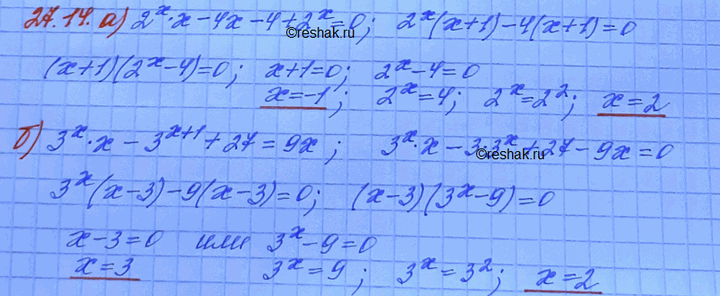 27.14. а) 2^x·x-4x-4+2^x=0; 2^x(x+1)-4(x+1)=0
©reshak.ru
(x+1)(2^x-4)=0; x+1=0; 2^x-4=0
x=-1; 2^x=4; 2^x=2^2; x=2
б) 3^x·x-3^{x+1}+27=9x; 3^x·x-3·3^x+27-9x=0
©reshak.ru
3^x(x-3)-9(x-3)=0; (x-3)(3^x-9)=0
x-3=0 или 3^x-9=0
x=3 3^x=9; 3^x=3^2; x=2